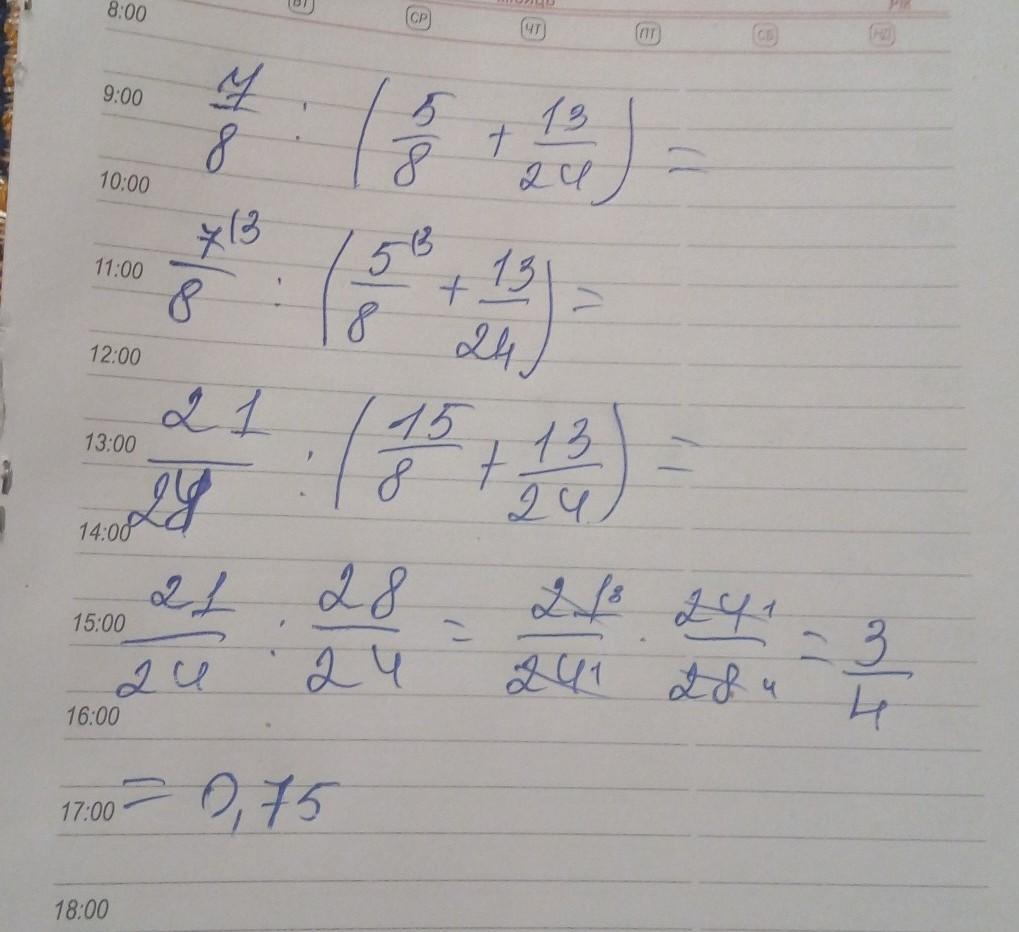 8:00 ВТ СР ЧТ ПТ СБ НД
9:00 7/8 : (5/8 + 13/24) =
10:00
11:00 7(3/8 : (5(3/8 + 13/24) =
12:00
13:00 21/24 : (15/8 + 13/24) =
14:00
15:00 21/24 : 28/24 = 21 3/24 1 · 24 1/28 4 = 3/4
16:00
17:00 = 0,75
18:00